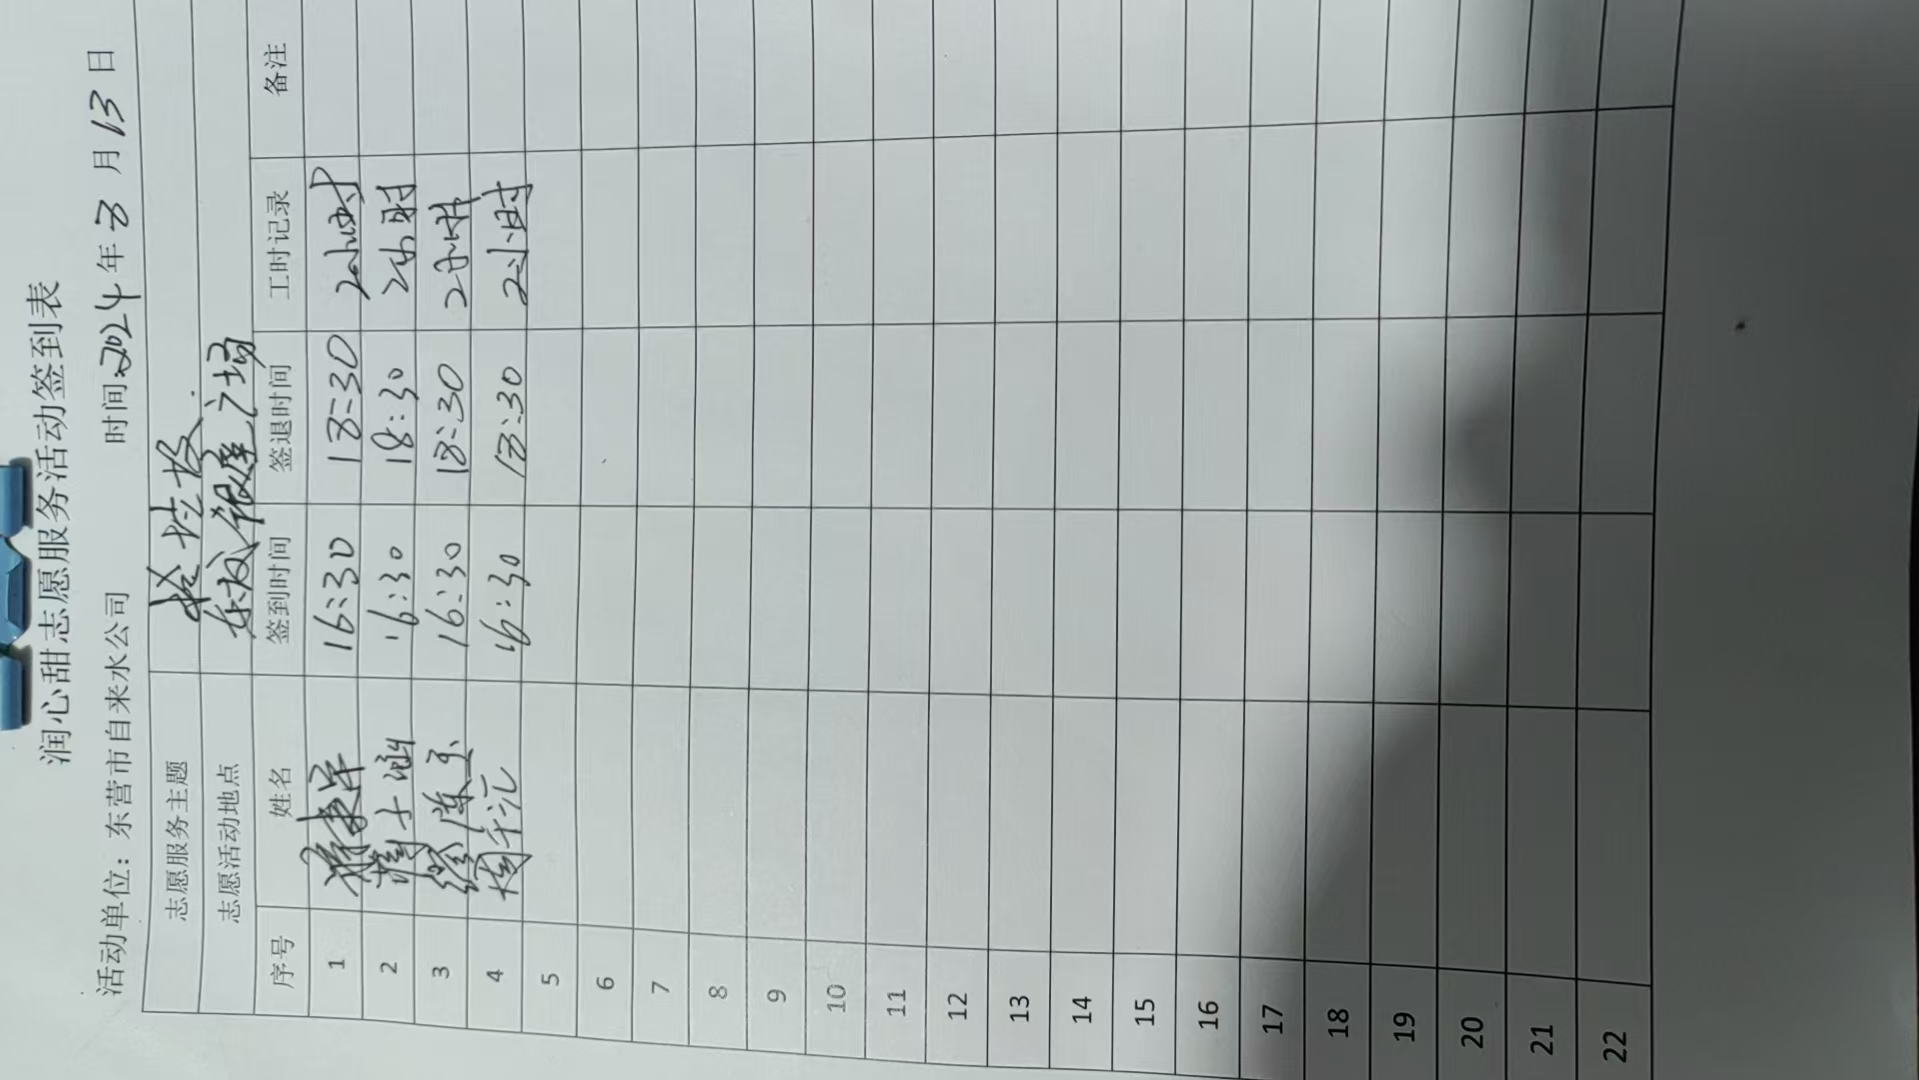 润心甜志愿服务活动签到表
活动单位：东营市自来水公司 时间：2024年3月13日
志愿服务主题 捡垃圾
志愿活动地点 东城银座广场
序号 姓名 签到时间 签退时间 工时记录 备注
1 16:30 18:30 2小时
2 子涵 16:30 18:30 2小时
3 16:30 18:30 2小时
4 16:30 18:30 2小时
5
6
7
8
9
10
11
12
13
14
15
16
17
18
19
20
21
22